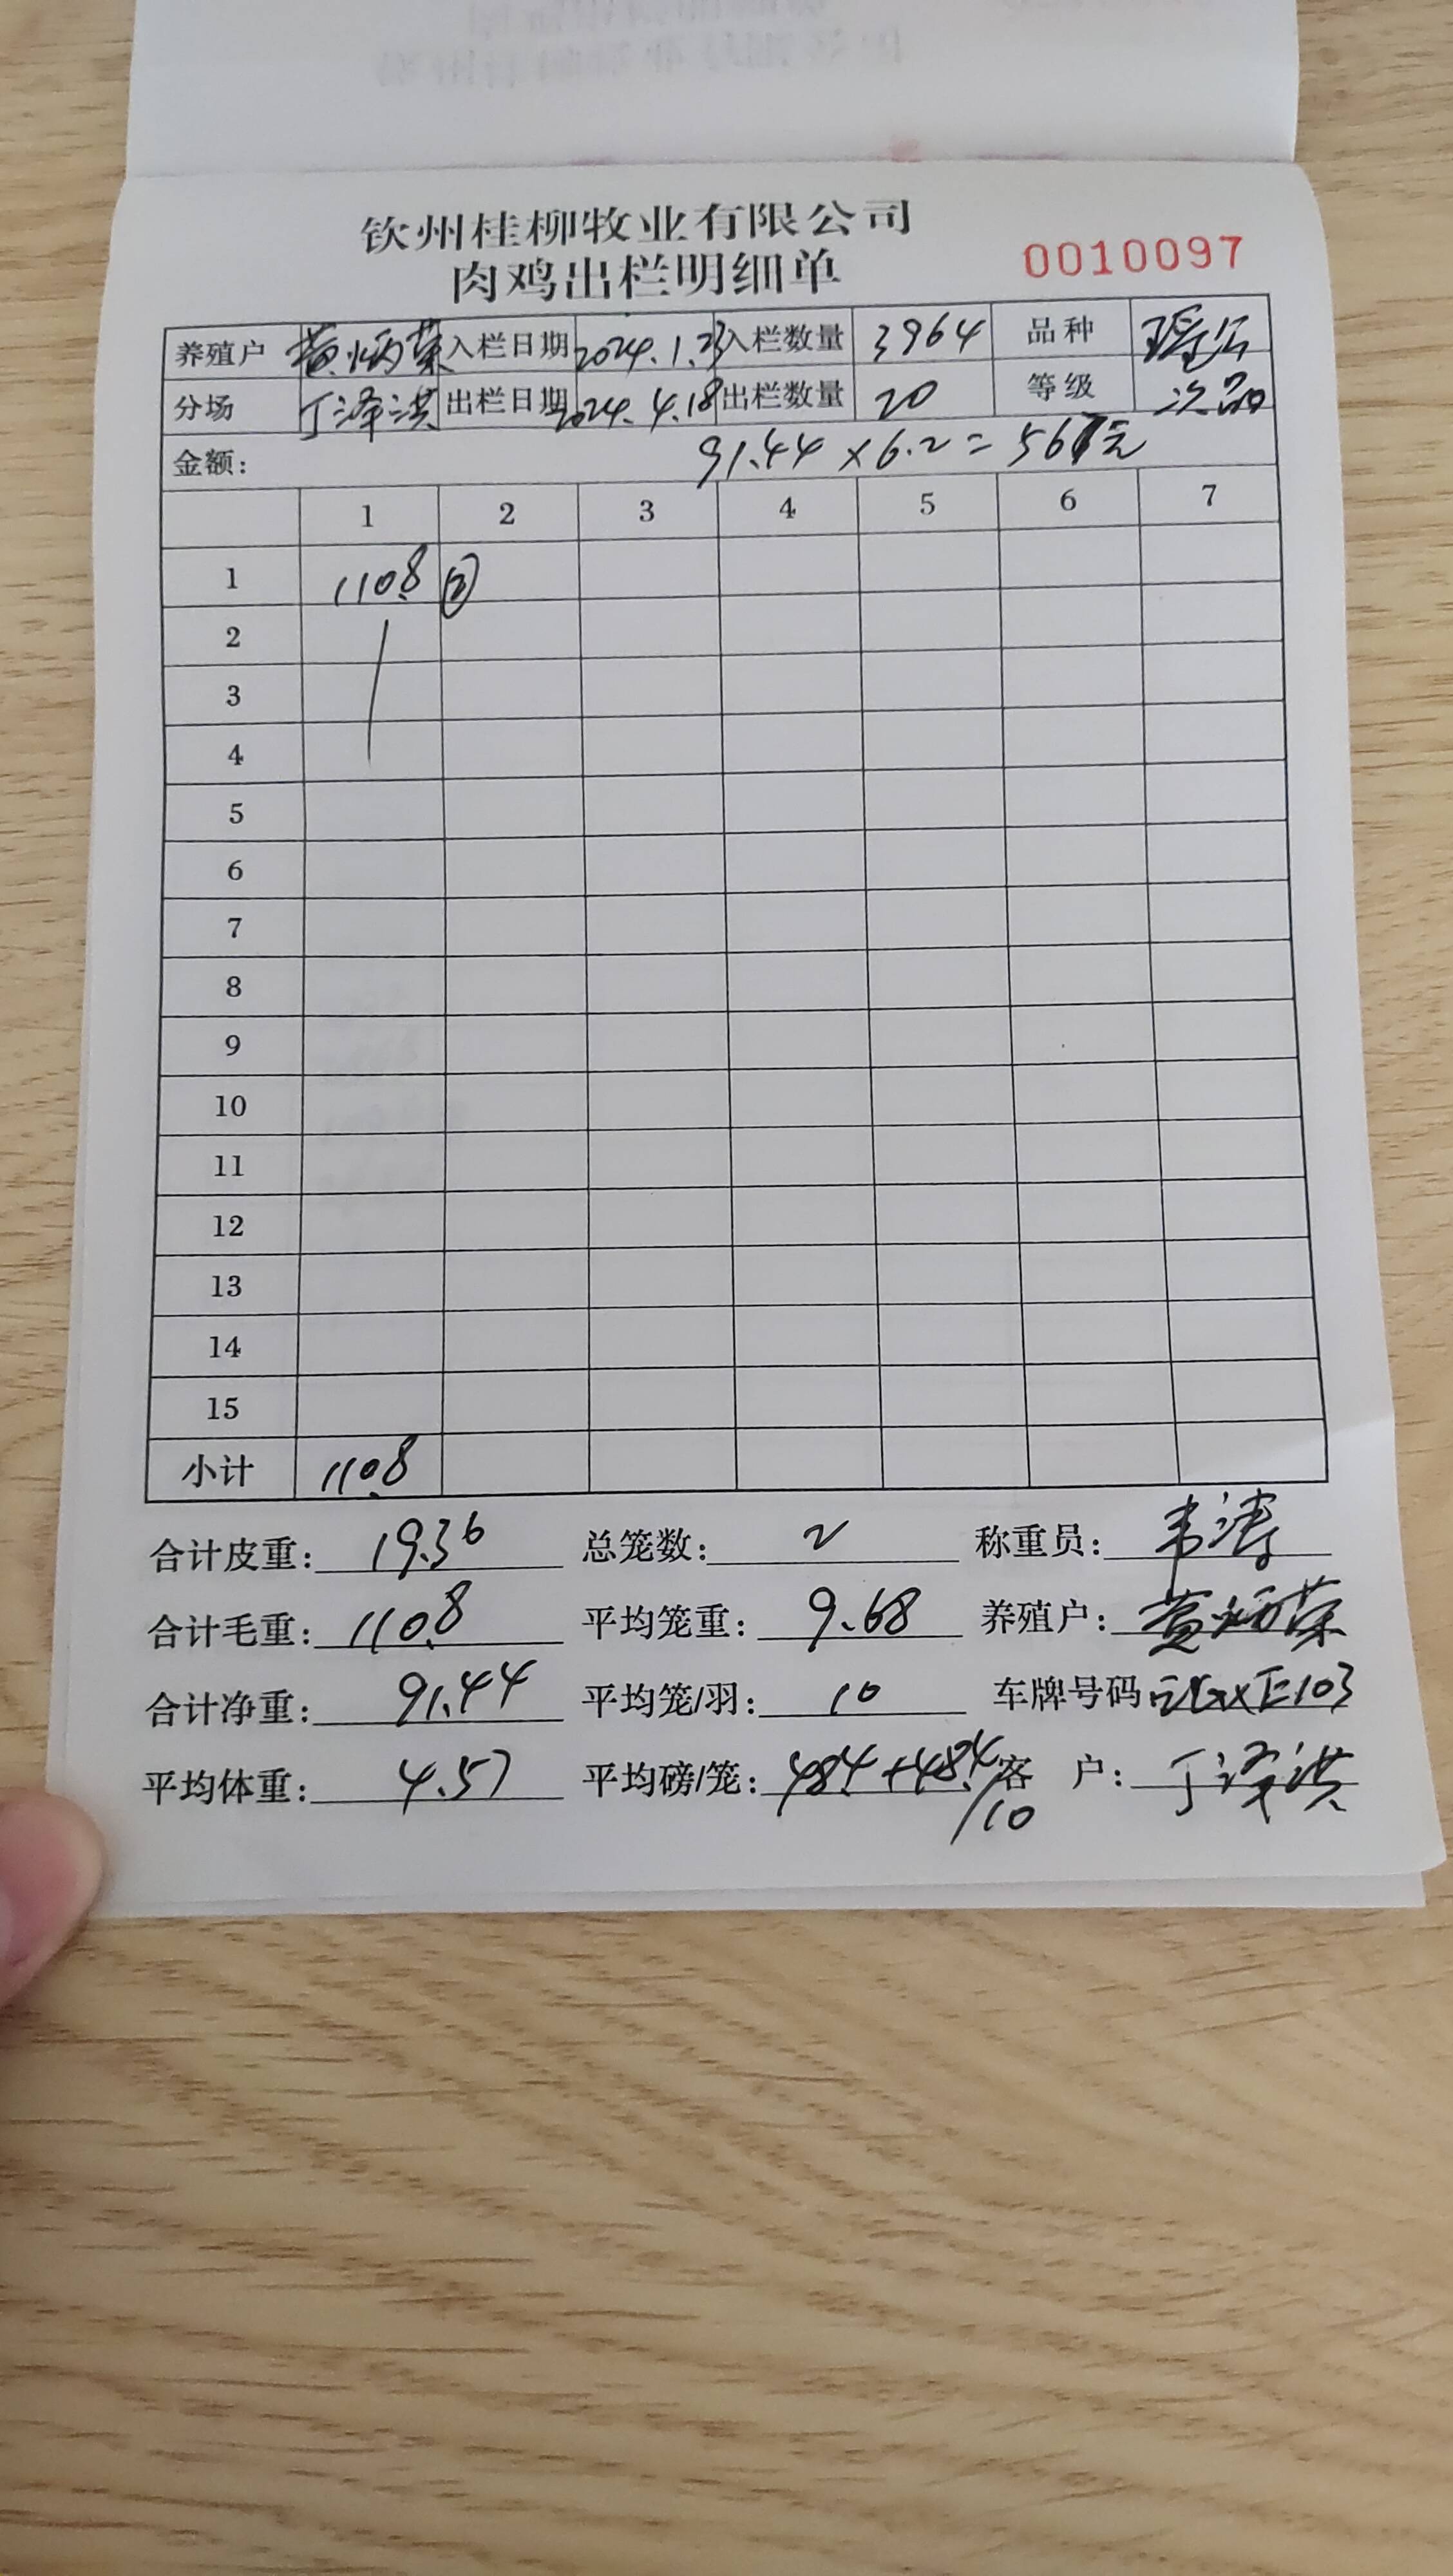 钦州桂柳牧业有限公司
肉鸡出栏明细单
0010097
养殖户 黄炳荣 入栏日期 2024.1.23 入栏数量 3964 品种
分场 丁泽洪 出栏日期 2024.4.18 出栏数量 20 等级 次品
金额: 91.44×6.2=567元
1 2 3 4 5 6 7
1 110.8 ②
2
3
4
5
6
7
8
9
10
11
12
13
14
15
小计 110.8
合计皮重: 19.36 总笼数: 2 称重员: 韦涛
合计毛重: 110.8 平均笼重: 9.68 养殖户: 黄炳荣
合计净重: 91.44 平均笼/羽: 10 车牌号码
平均体重: 4.57 平均磅/笼: 48.4+48.4/10 客 户: 丁泽洪